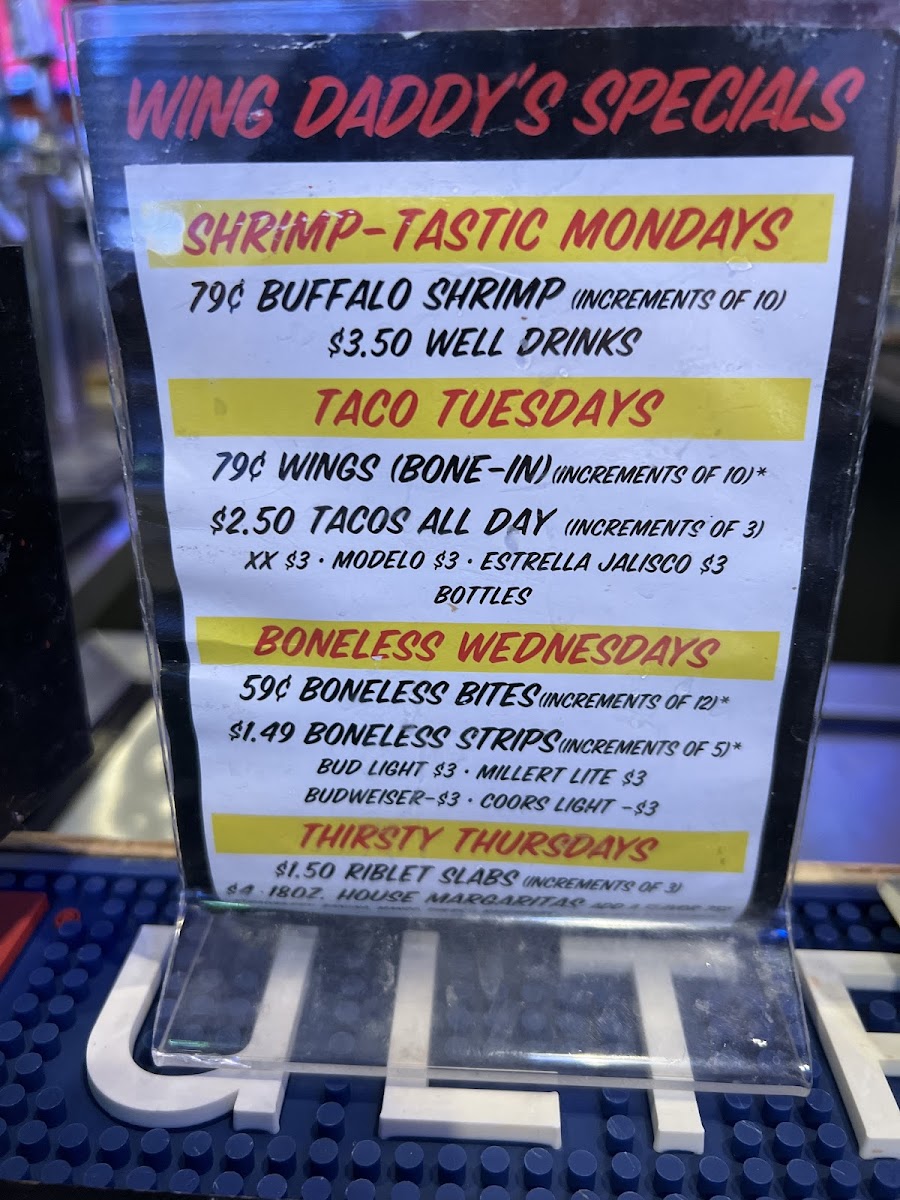 WING DADDY'S SPECIALS
SHRIMP-TASTIC MONDAYS
79¢ BUFFALO SHRIMP (INCREMENTS OF 10)
$3.50 WELL DRINKS
TACO TUESDAYS
79¢ WINGS (BONE-IN) (INCREMENTS OF 10)*
$2.50 TACOS ALL DAY (INCREMENTS OF 3)
XX $3 · MODELO $3 · ESTRELLA JALISCO $3
BOTTLES
BONELESS WEDNESDAYS
59¢ BONELESS BITES (INCREMENTS OF 12)*
$1.49 BONELESS STRIPS (INCREMENTS OF 5)*
BUD LIGHT $3 · MILLERT LITE $3
BUDWEISER-$3 · COORS LIGHT -$3
THIRSTY THURSDAYS
$1.50 RIBLET SLABS (INCREMENTS OF 3)
$4 - 18OZ. HOUSE MARGARITAS ADD A FLAVOR
ULT